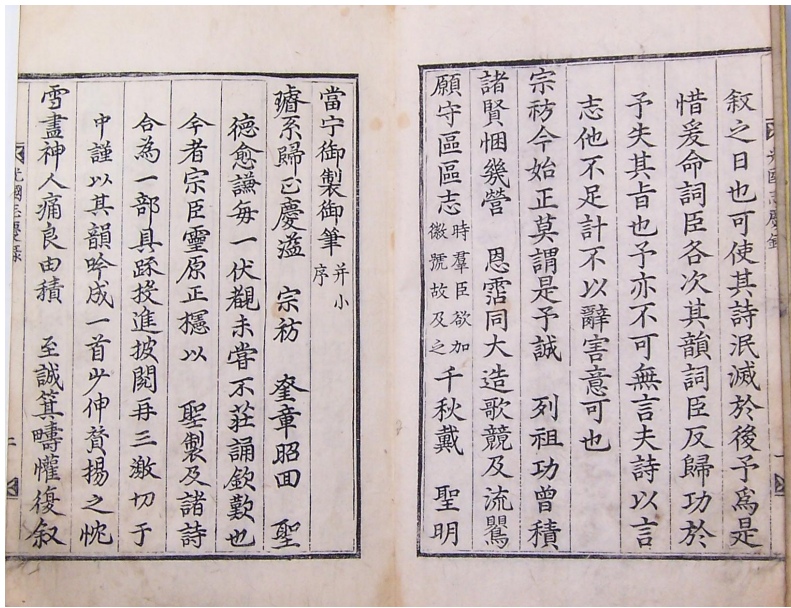 叙之日也可使其詩泯滅於後予爲是
惜爰命詞臣各次其韻詞臣反歸功於
予失其旨也予亦不可無言夫詩以言
志他不足計不以辭害意可也
宗祊今始正莫謂是予誠 列祖功曾積
諸賢悃幾營 恩霑同大造歌競及流鸎
願守區區志 時羣臣欲加徽號故及之 千秋戴 聖明
當宁御製御筆 并小序
璿系歸正慶溢 宗祊 奎章昭回 聖
德愈謙每一伏覩未嘗不莊誦欽歎也
今者宗臣靈原正櫶以 聖製及諸詩
合為一部具踈投進披閱再三激切于
中謹以其韻吟成一首少伸贊揚之忱
雪盡神人痛良由積 至誠箕疇懽復叙
光國志慶錄
一
光國志慶錄
二